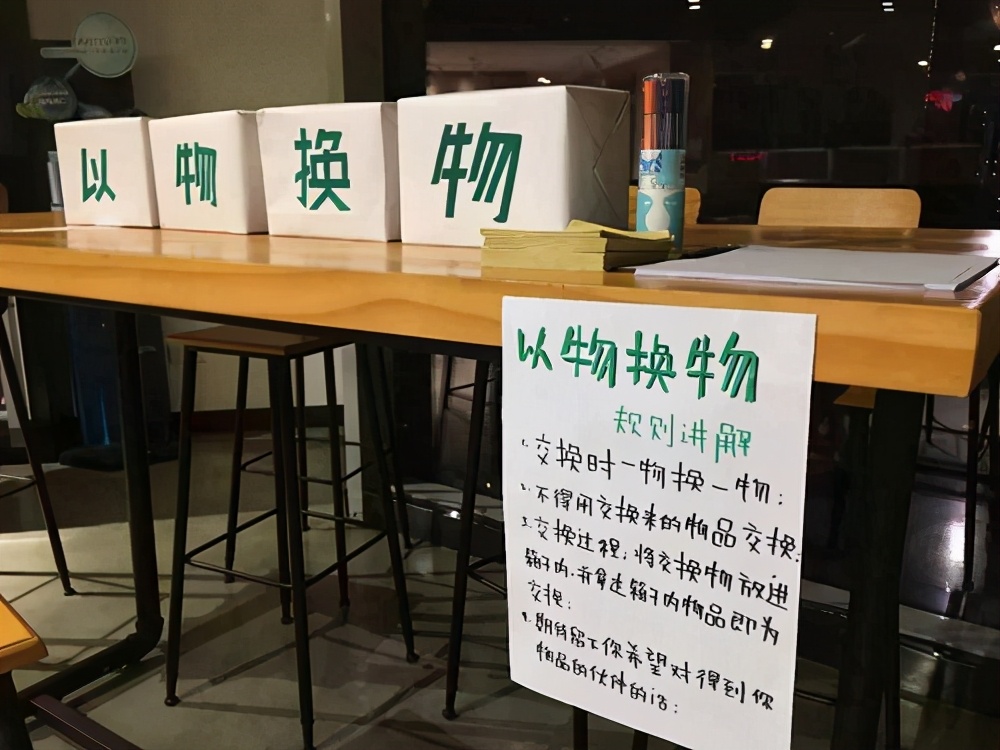 以物换物
以物换物
规则讲解
1.交换时一物换一物;
2.不得用交换来的物品交换;
3.交换过程:将交换物放进
箱子内,并拿走箱子内物品即为
交换;
4.期待留下你希望对得到你
物品的伙伴的话;